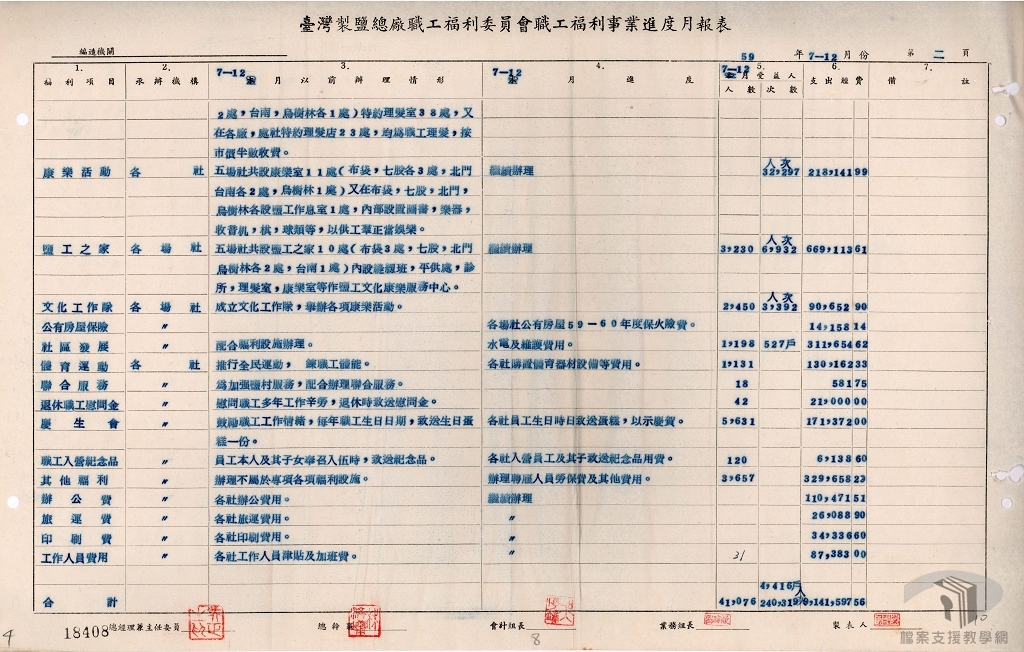 臺灣製鹽總廠職工福利委員會職工福利事業進度月報表
編造機關 59 年 7-12 月份 第 二 頁
1. 2. 3. 4. 5. 6. 7.
福利項目 承辦機構 7-12 月以前辦理情形 7-12 月進度 7-12 月受益人 支出經費 備註
人數 次數
2處,台南,烏樹林各1處)特約理髮室38處,又
在各廠,處社特約理髮店23處,均為職工理髮,按
市價半數收費。
康樂活動 各社 五場社共設康樂室11處(布袋,七股各3處,北門 繼續辦理 人次 32,297 218,141 99
台南各2處,烏樹林1處)又在布袋,七股,北門,
烏樹林各設鹽工作息室1處,內部設置圖書,樂器,
收音机,棋,球類等,以供工羣正當娛樂。
鹽工之家 各場社 五場社共設鹽工之家10處(布袋3處,七股,北門 繼續辦理 3,230 人次 6,932 669,113 61
烏樹林各2處,台南1處)內設縫紉班,平供處,診
所,理髮室,康樂室等作鹽工文化康樂服務中心。
文化工作隊 各場社 成立文化工作隊,舉辦各項康樂活動。 2,450 人次 3,392 90,652 90
公有房屋保險 〃 各場社公有房屋59-60年度保火險費。 14,158 14
社區發展 〃 配合福利設施辦理。 水電及維護費用。 1,198 527戶 311,654 62
體育運動 各社 推行全民運動,鍛職工體能。 各社購置體育器材設備等費用。 1,131 130,162 33
聯合服務 〃 為加强鹽村服務,配合辦理聯合服務。 18 581 75
退休職工慰問金 〃 慰問職工多年工作辛勞,退休時致送慰問金。 42 21,000 00
慶生會 〃 鼓勵職工工作情緒,每年職工生日日期,致送生日蛋 各社員工生日時日致送蛋糕,以示慶賀。 5,631 171,372 00
糕一份。
職工入營紀念品 〃 員工本人及其子女奉召入伍時,致送紀念品。 各社入營員工及其子致送紀念品用費。 120 6,138 60
其他福利 〃 辦理不屬於專項各項福利設施。 辦理聘雇人員勞保費及其他費用。 3,657 329,658 23
辦公費 〃 各社辦公費用。 繼續辦理 110,471 51
旅運費 〃 各社旅運費用。 〃 26,088 90
印刷費 〃 各社印刷費用。 〃 34,336 60
工作人員費用 〃 各社工作人員津貼及加班費。 〃 31 87,383 00
合計 41,076 4,416戶 240,319人 9,141,597 56
18408 總經理兼主任委員 總幹事 會計組長 業務組長 製表人
4 8 10
檔案支援教學網